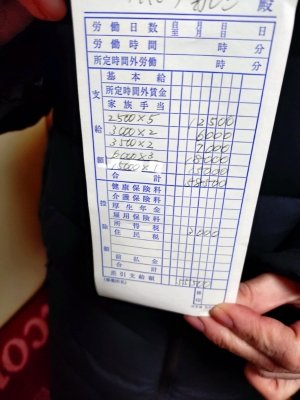 殿
労働日数 自 月 日 至 月 日 日
労働時間 時 分
所定時間外労働 時 分
支給額
基本給
所定時間外賃金
家族手当
2500×5 12,500
3000×2 6000
3500×2 7000
6000×3 18000
15000×1 15000
合計 58500
控除額
健康保険料
介護保険料
厚生年金
雇用保険料
所得税
住民税 2,000
前払金
合計
差引支給額